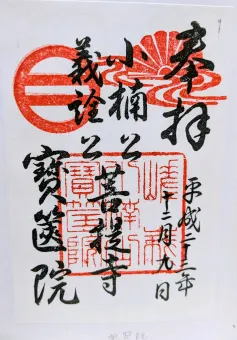 奉拝
平成二三年
十二月九日
小楠公
義詮公
菩提寺
寶筐院